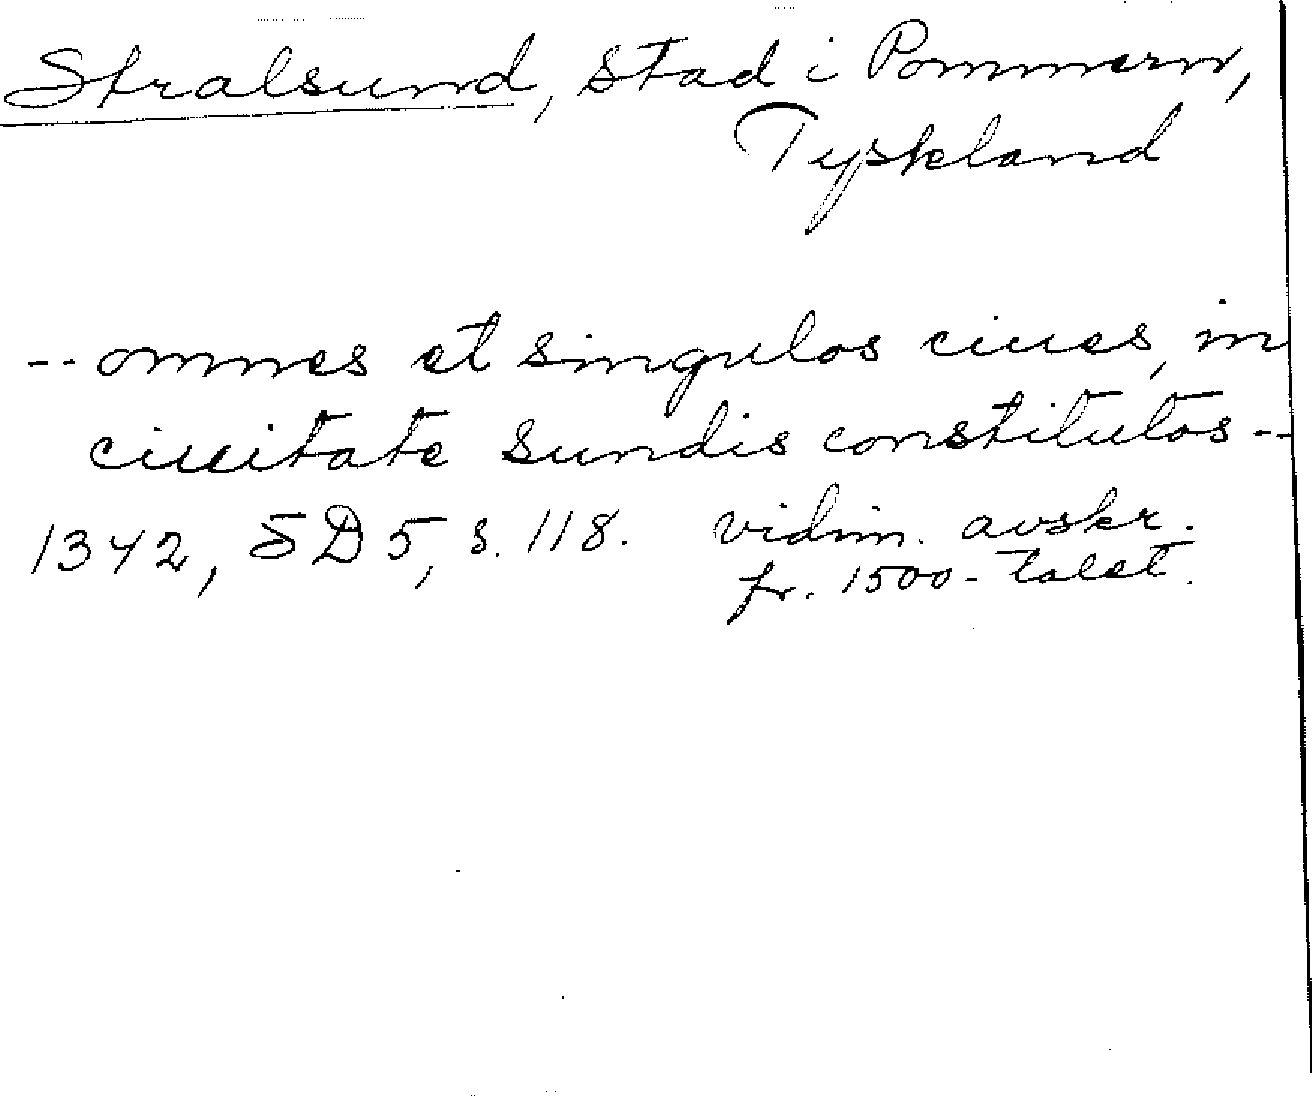 Stralsund, stad i Pommern,
Tyskland
-- omnes et singulos ciues, in
ciuitate Sundis constitutos --
1342, SD 5, s. 118. vidim. avskr.
fr. 1500-talet.